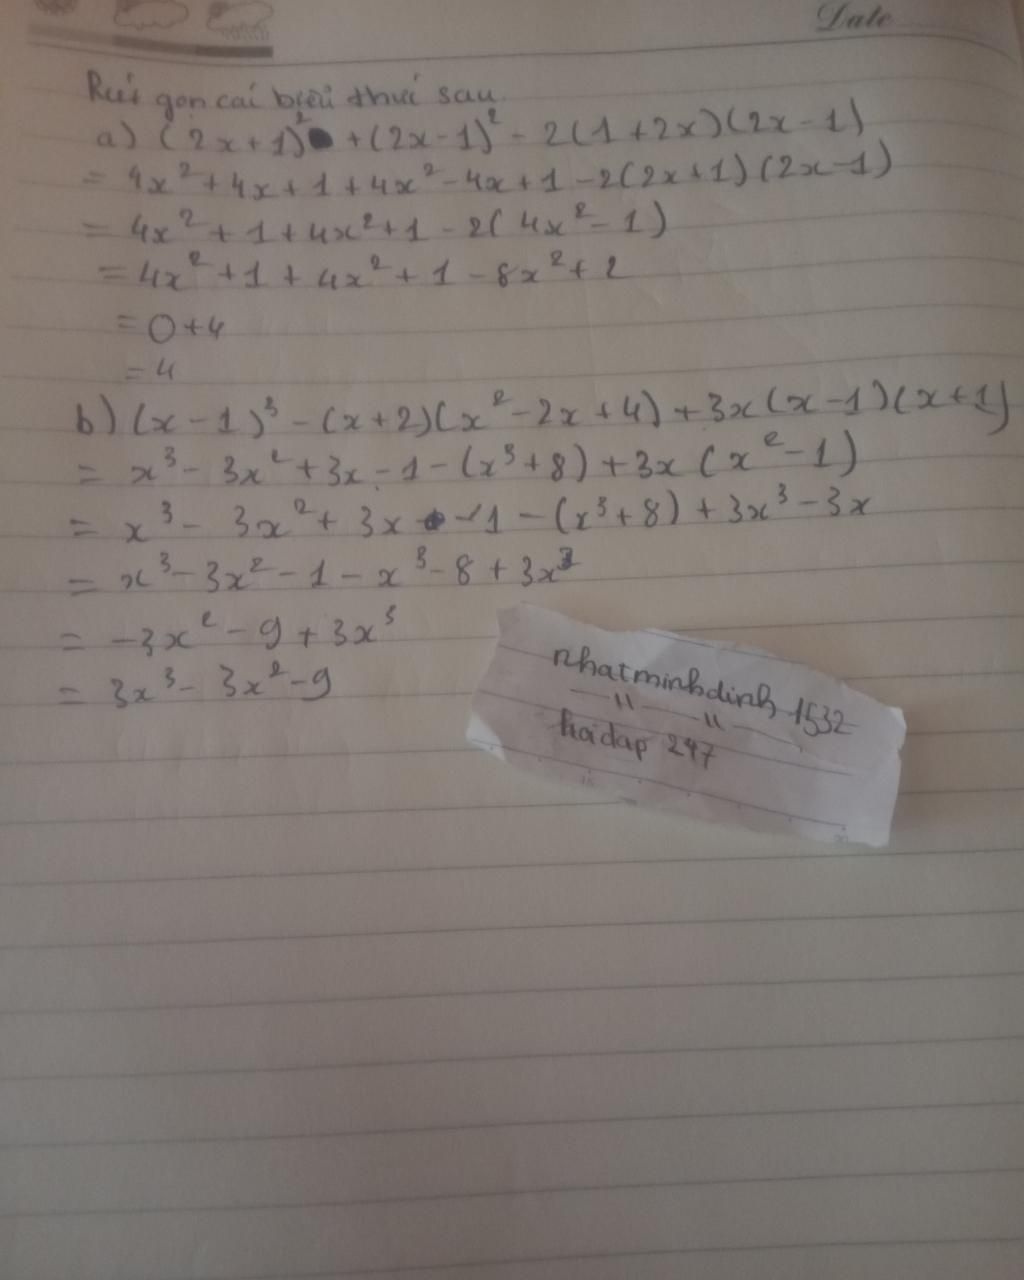 Date
Rút gọn cái biểu thưí sau
a) (2x+1)² + (2x-1)² - 2(1+2x)(2x-1)
= 4x² + 4x + 1 + 4x² - 4x + 1 - 2(2x+1)(2x-1)
= 4x² + 1 + 4x² + 1 - 2(4x² - 1)
= 4x² + 1 + 4x² + 1 - 8x² + 2
= 0 + 4
= 4
b) (x - 1)³ - (x + 2)(x² - 2x + 4) + 3x(x - 1)(x + 1)
= x³ - 3x² + 3x - 1 - (x³ + 8) + 3x(x² - 1)
= x³ - 3x² + 3x - 1 - (x³ + 8) + 3x³ - 3x
= x³ - 3x² - 1 - x³ - 8 + 3x³
= -3x² - 9 + 3x³
= 3x³ - 3x² - 9
nhatminhdinh 1532
hoidap 247